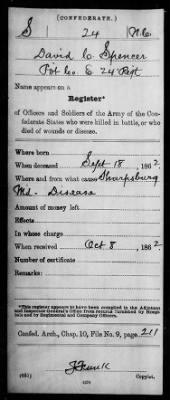 (CONFEDERATE.)
S 24 N.C.
David C. Spencer
Pvt Co. E 24 Regt
Name appears on a
Register*
of Officers and Soldiers of the Army of the Con-
federate States who were killed in battle, or who
died of wounds or disease.
Where born
When deceased Sept 18, 1862.
Where and from what cause Sharpsburg
Md. Disease
Amount of money left
Effects
In whose charge
When received Oct 8, 1862
Number of certificate
Remarks:
*This register appears to have been compiled in the Adjutant
and Inspector General's Office from returns furnished by Hospi-
tals and by Regimental and Company Officers.
Confed. Arch., Chap. 10, File No. 9, page 211
Copyist.